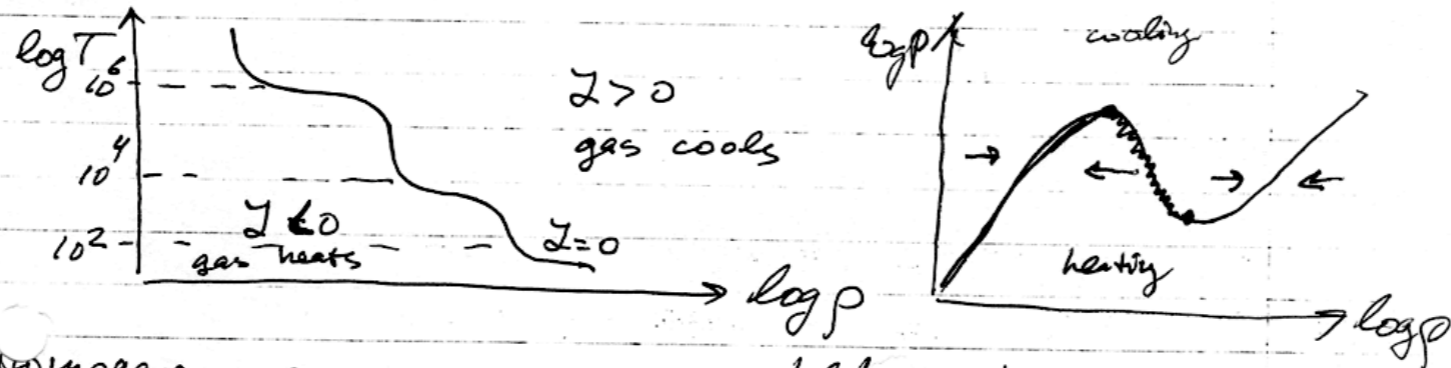 log T
10^6
10^4
10^2
ℒ > 0
gas cools
ℒ < 0
gas heats
ℒ = 0
log ρ
log P
cooling
heating
log ρ